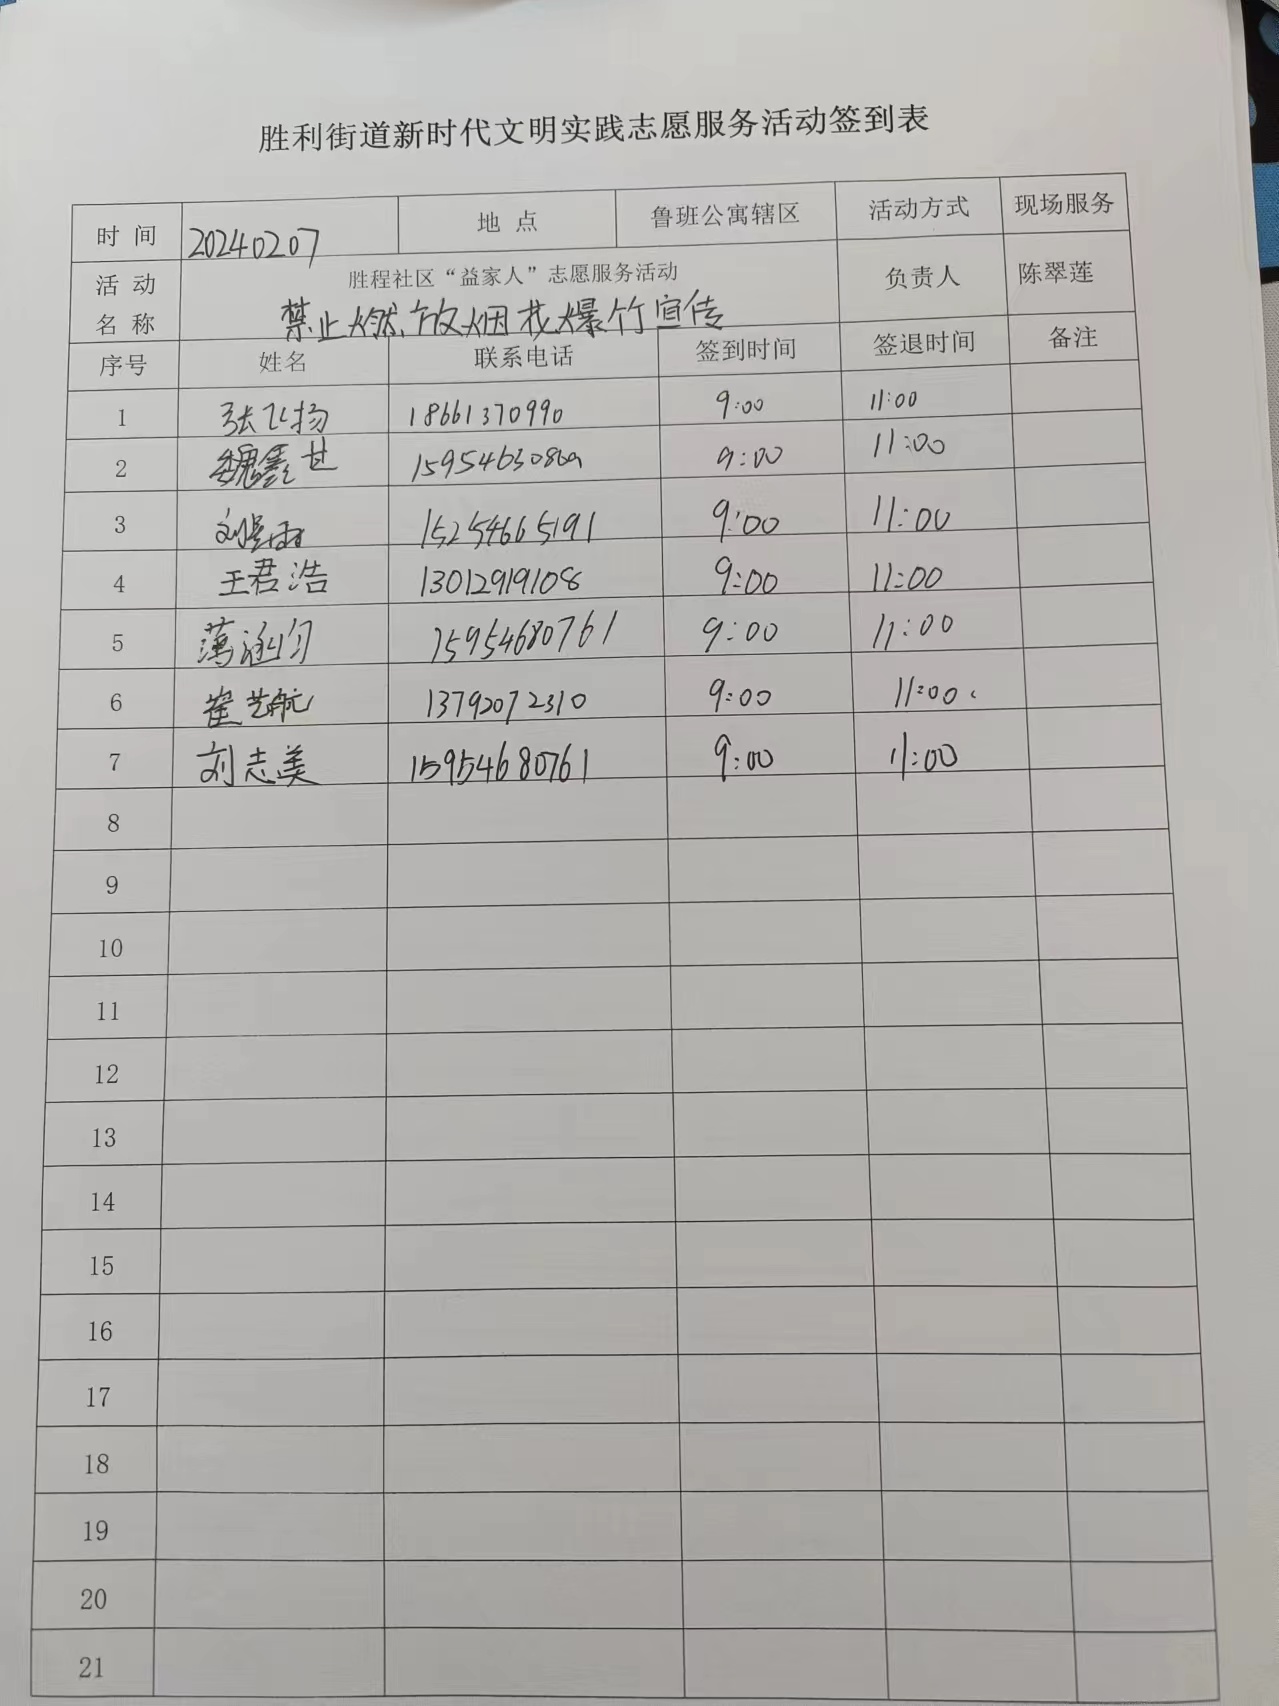 胜利街道新时代文明实践志愿服务活动签到表
时 间 20240207 地 点 鲁班公寓辖区 活动方式 现场服务
活 动 名 称 胜程社区“益家人”志愿服务活动 负责人 陈翠莲
禁止燃放烟花爆竹宣传
序号 姓名 联系电话 签到时间 签退时间 备注
1 张飞扬 18661370990 9:00 11:00
2 魏 9:00 11:00
3 刘 15254665191 9:00 11:00
4 王君浩 13012919108 9:00 11:00
5 薄涵匀 15954680761 9:00 11:00
6 崔艺航 13792072310 9:00 11:00
7 刘志美 15954680761 9:00 11:00
8
9
10
11
12
13
14
15
16
17
18
19
20
21